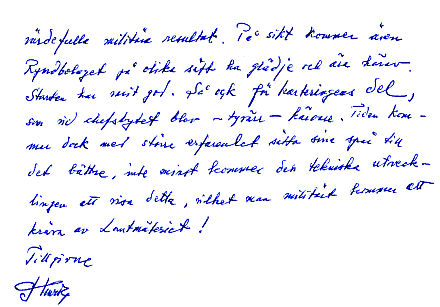 värdefulla militära resultat. På sikt kommer även
Rymdbolaget på olika sätt ha glädje och ära härav.
Starten har varit god. Så ock för karteringens del,
som vid chefsbytet blev – tyvärr –. Tiden kom-
mer dock med större erfarenhet sätta sina spår till
det bättre, inte minst kommer den tekniska utveck-
lingen att visa detta, vilket man militärt kommer att
kräva av Lantmäteriet!